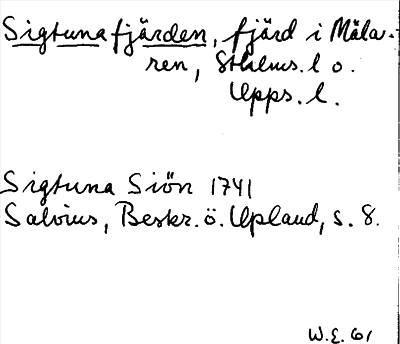 Sigtunafjärden, fjärd i Mäla-
ren, Sthlms. l o.
Upps. l.
Sigtuna Siön 1741
Salvius, Beskr. ö. Upland, s. 8.
W.E. 61